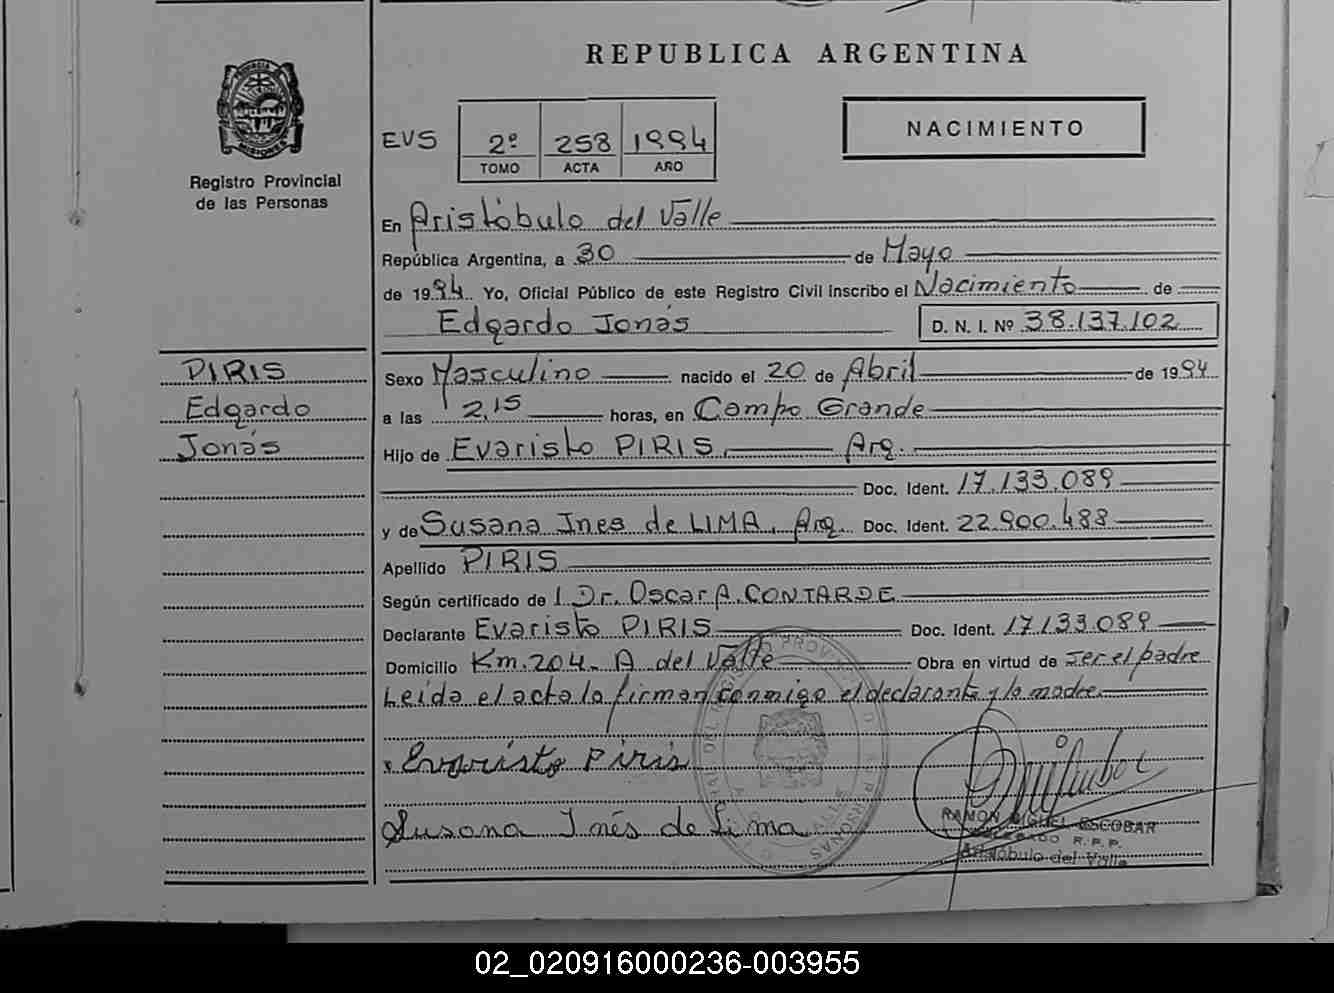 REPUBLICA ARGENTINA
PROVINCIA
MISIONES
Registro Provincial
de las Personas
EVS 2º 258 1994
TOMO ACTA AÑO
NACIMIENTO
En Aristóbulo del Valle
República Argentina, a 30 de Mayo
de 1994. Yo, Oficial Público de este Registro Civil inscribo el Nacimiento de
Edgardo Jonás D. N. I. Nº 38.137.102
PIRIS
Edgardo
Jonás
Sexo Masculino nacido el 20 de Abril de 1994
a las 2,15 horas, en Campo Grande
Hijo de Evaristo PIRIS, Arg.
Doc. Ident. 17.133.089
y de Susana Ines de LIMA, Arg. Doc. Ident. 22.900.488
Apellido PIRIS
Según certificado de l Dr. Oscar A. CONTARDE
Declarante Evaristo PIRIS Doc. Ident. 17.133.089
Domicilio Km. 204- A del Valle Obra en virtud de ser el padre
Leída el acta la firman conmigo el declarante y la madre.
Evaristo Piris
Susana Inés de Lima
RAMON MIGUEL ESCOBAR
R.P.P.
Aristóbulo del Valle
02_020916000236-003955